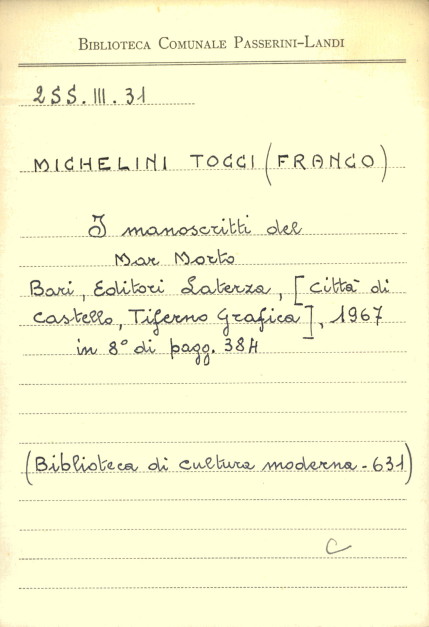 BIBLIOTECA COMUNALE PASSERINI-LANDI
2SS.III.31
MICHELINI TOCCI (FRANCO)
I manoscritti del
Mar Morto
Bari, Editori Laterza, [Città di
Castello, Tiferno Grafica], 1967
in 8° di pagg. 384
(Biblioteca di cultura moderna - 631)
C